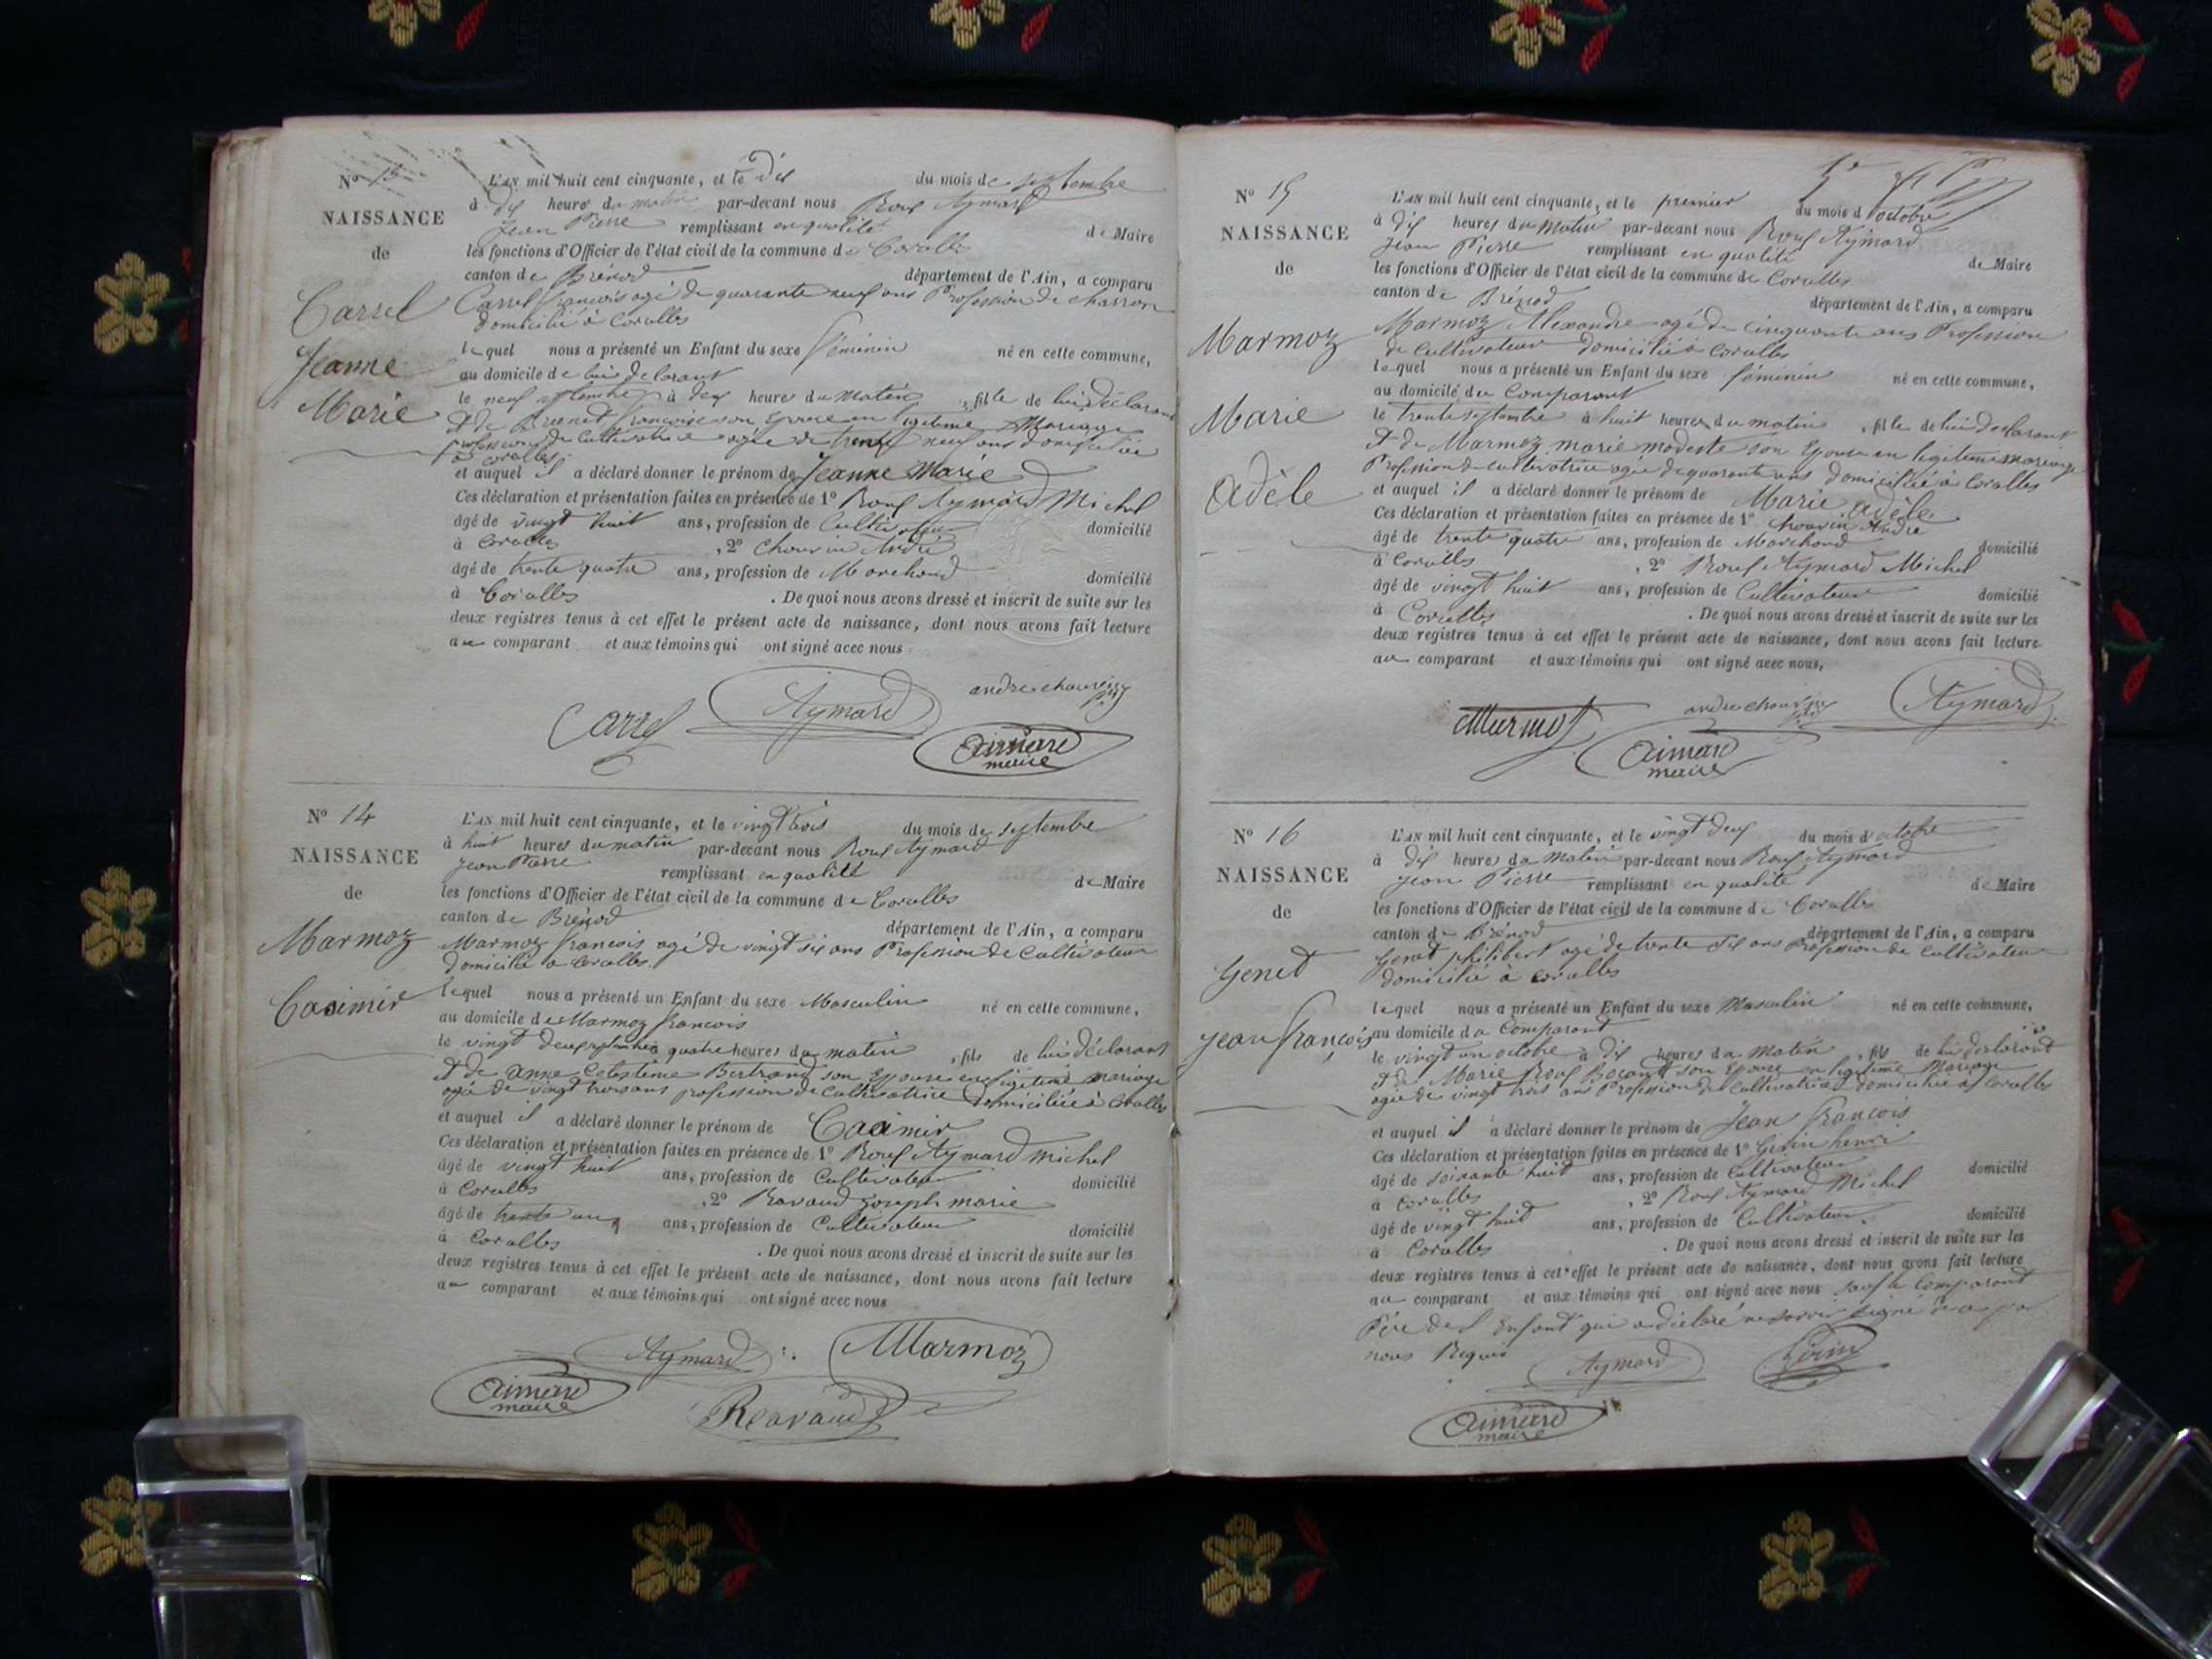 N° 13
NAISSANCE
de
Carrel
Jeanne
Marie
L'an mil huit cent cinquante, et le dix du mois de septembre
à dix heures du matin par-devant nous Roux Aymard
Jean Pierre remplissant en qualité de Maire
les fonctions d'Officier de l'état civil de la commune de Coralles
canton de Brénod département de l'Ain, a comparu
Carrel françois agé de quarante neuf ans Profession de charron
domicilié à Coralles
lequel nous a présenté un Enfant du sexe féminin né en cette commune,
au domicile de lui declarant
le neuf septembre à deux heure du matin, fille de lui déclarant
et de françoise son Epouse en légitime Mariage
profession de Cultivatrice agée de trente neuf ans domiciliée
à Coralles
et auquel il a déclaré donner le prénom de Jeanne Marie
Ces déclaration et présentation faites en présence de 1° Roux Aymard Michel
âgé de vingt huit ans, profession de Cultivateur domicilié
à Coralles, 2° Chouvin André
âgé de trente quatre ans, profession de Marchand domicilié
à Coralles. De quoi nous avons dressé et inscrit de suite sur les
deux registres tenus à cet effet le présent acte de naissance, dont nous avons fait lecture
au comparant et aux témoins qui ont signé avec nous
andre chouvin
Carrel Aymard
Aimard
maire
N° 14
NAISSANCE
de
Marmoz
Casimir
L'an mil huit cent cinquante, et le vingt trois du mois de septembre
à huit heures du matin par-devant nous Roux Aymard
Jean Pierre remplissant en qualité de Maire
les fonctions d'Officier de l'état civil de la commune de Coralles
canton de Brénod département de l'Ain, a comparu
Marmoz françois agé de vingt six ans Profession de Cultivateur
domicilié à Coralles
lequel nous a présenté un Enfant du sexe Masculin né en cette commune,
au domicile de Marmoz françois
le vingt deux septembre à quatre heures du matin, fils de lui déclarant
et de Anne Celestine Bertrand son Epouse en légitime mariage
agée de vingt trois ans profession de Cultivatrice domiciliée à Coralles
et auquel il a déclaré donner le prénom de Casimir
Ces déclaration et présentation faites en présence de 1° Roux Aymard Michel
âgé de vingt huit ans, profession de Cultivateur domicilié
à Coralles, 2° Ravaud Joseph marie
âgé de trente un ans, profession de Cultivateur domicilié
à Coralles. De quoi nous avons dressé et inscrit de suite sur les
deux registres tenus à cet effet le présent acte de naissance, dont nous avons fait lecture
au comparant et aux témoins qui ont signé avec nous
Aymard Marmoz
Aimard
maire
Ravaud
N° 15
NAISSANCE
de
Marmoz
Marie
Adèle
L'an mil huit cent cinquante, et le premier du mois d'octobre
à dix heures du Matin par-devant nous Roux Aymard
Jean Pierre remplissant en qualité de Maire
les fonctions d'Officier de l'état civil de la commune de Coralles
canton de Brénod département de l'Ain, a comparu
Marmoz Alexandre agé de cinquante ans Profession
de Cultivateur domicilié à Coralles
lequel nous a présenté un Enfant du sexe féminin né en cette commune,
au domicile du Comparant
le trente septembre à huit heures du matin, fille de lui déclarant
et de Marmoz marie modeste son Epouse en légitime mariage
Profession de cultivatrice agée de quarante ans domiciliée à Coralles
et auquel il a déclaré donner le prénom de Marie Adèle
Ces déclaration et présentation faites en présence de 1° Chouvin André
âgé de trente quatre ans, profession de Marchand domicilié
à Coralles, 2° Roux Aymard Michel
âgé de vingt huit ans, profession de Cultivateur domicilié
à Coralles. De quoi nous avons dressé et inscrit de suite sur les
deux registres tenus à cet effet le présent acte de naissance, dont nous avons fait lecture
au comparant et aux témoins qui ont signé avec nous,
Marmoz andre chouvin Aymard
Aimard
maire
N° 16
NAISSANCE
de
Genet
Jean François
L'an mil huit cent cinquante, et le vingt deux du mois d'octobre
à dix heures du Matin par-devant nous Roux Aymard
Jean Pierre remplissant en qualité de Maire
les fonctions d'Officier de l'état civil de la commune de Coralles
canton de Brénod département de l'Ain, a comparu
Genet philibert agé de trente six ans Profession de Cultivateur
domicilié à Coralles
lequel nous a présenté un Enfant du sexe Masculin né en cette commune,
au domicile du Comparant
le vingt un octobre à dix heures du Matin, fils de lui declarant
et de Marie Roux son Epouse en légitime Mariage
agée de vingt trois ans Profession de Cultivatrice domiciliée à Coralles
et auquel il a déclaré donner le prénom de Jean François
Ces déclaration et présentation faites en présence de 1° Girin henri
âgé de soixante huit ans, profession de Cultivateur domicilié
à Coralles, 2° Roux Aymard Michel
âgé de vingt huit ans, profession de Cultivateur, domicilié
à Coralles. De quoi nous avons dressé et inscrit de suite sur les
deux registres tenus à cet effet le présent acte de naissance, dont nous avons fait lecture
au comparant et aux témoins qui ont signé avec nous sauf le Comparant
Père de l'Enfant qui a déclaré ne savoir signé de ce par
nous Requis
Aymard Girin
Aimard
maire